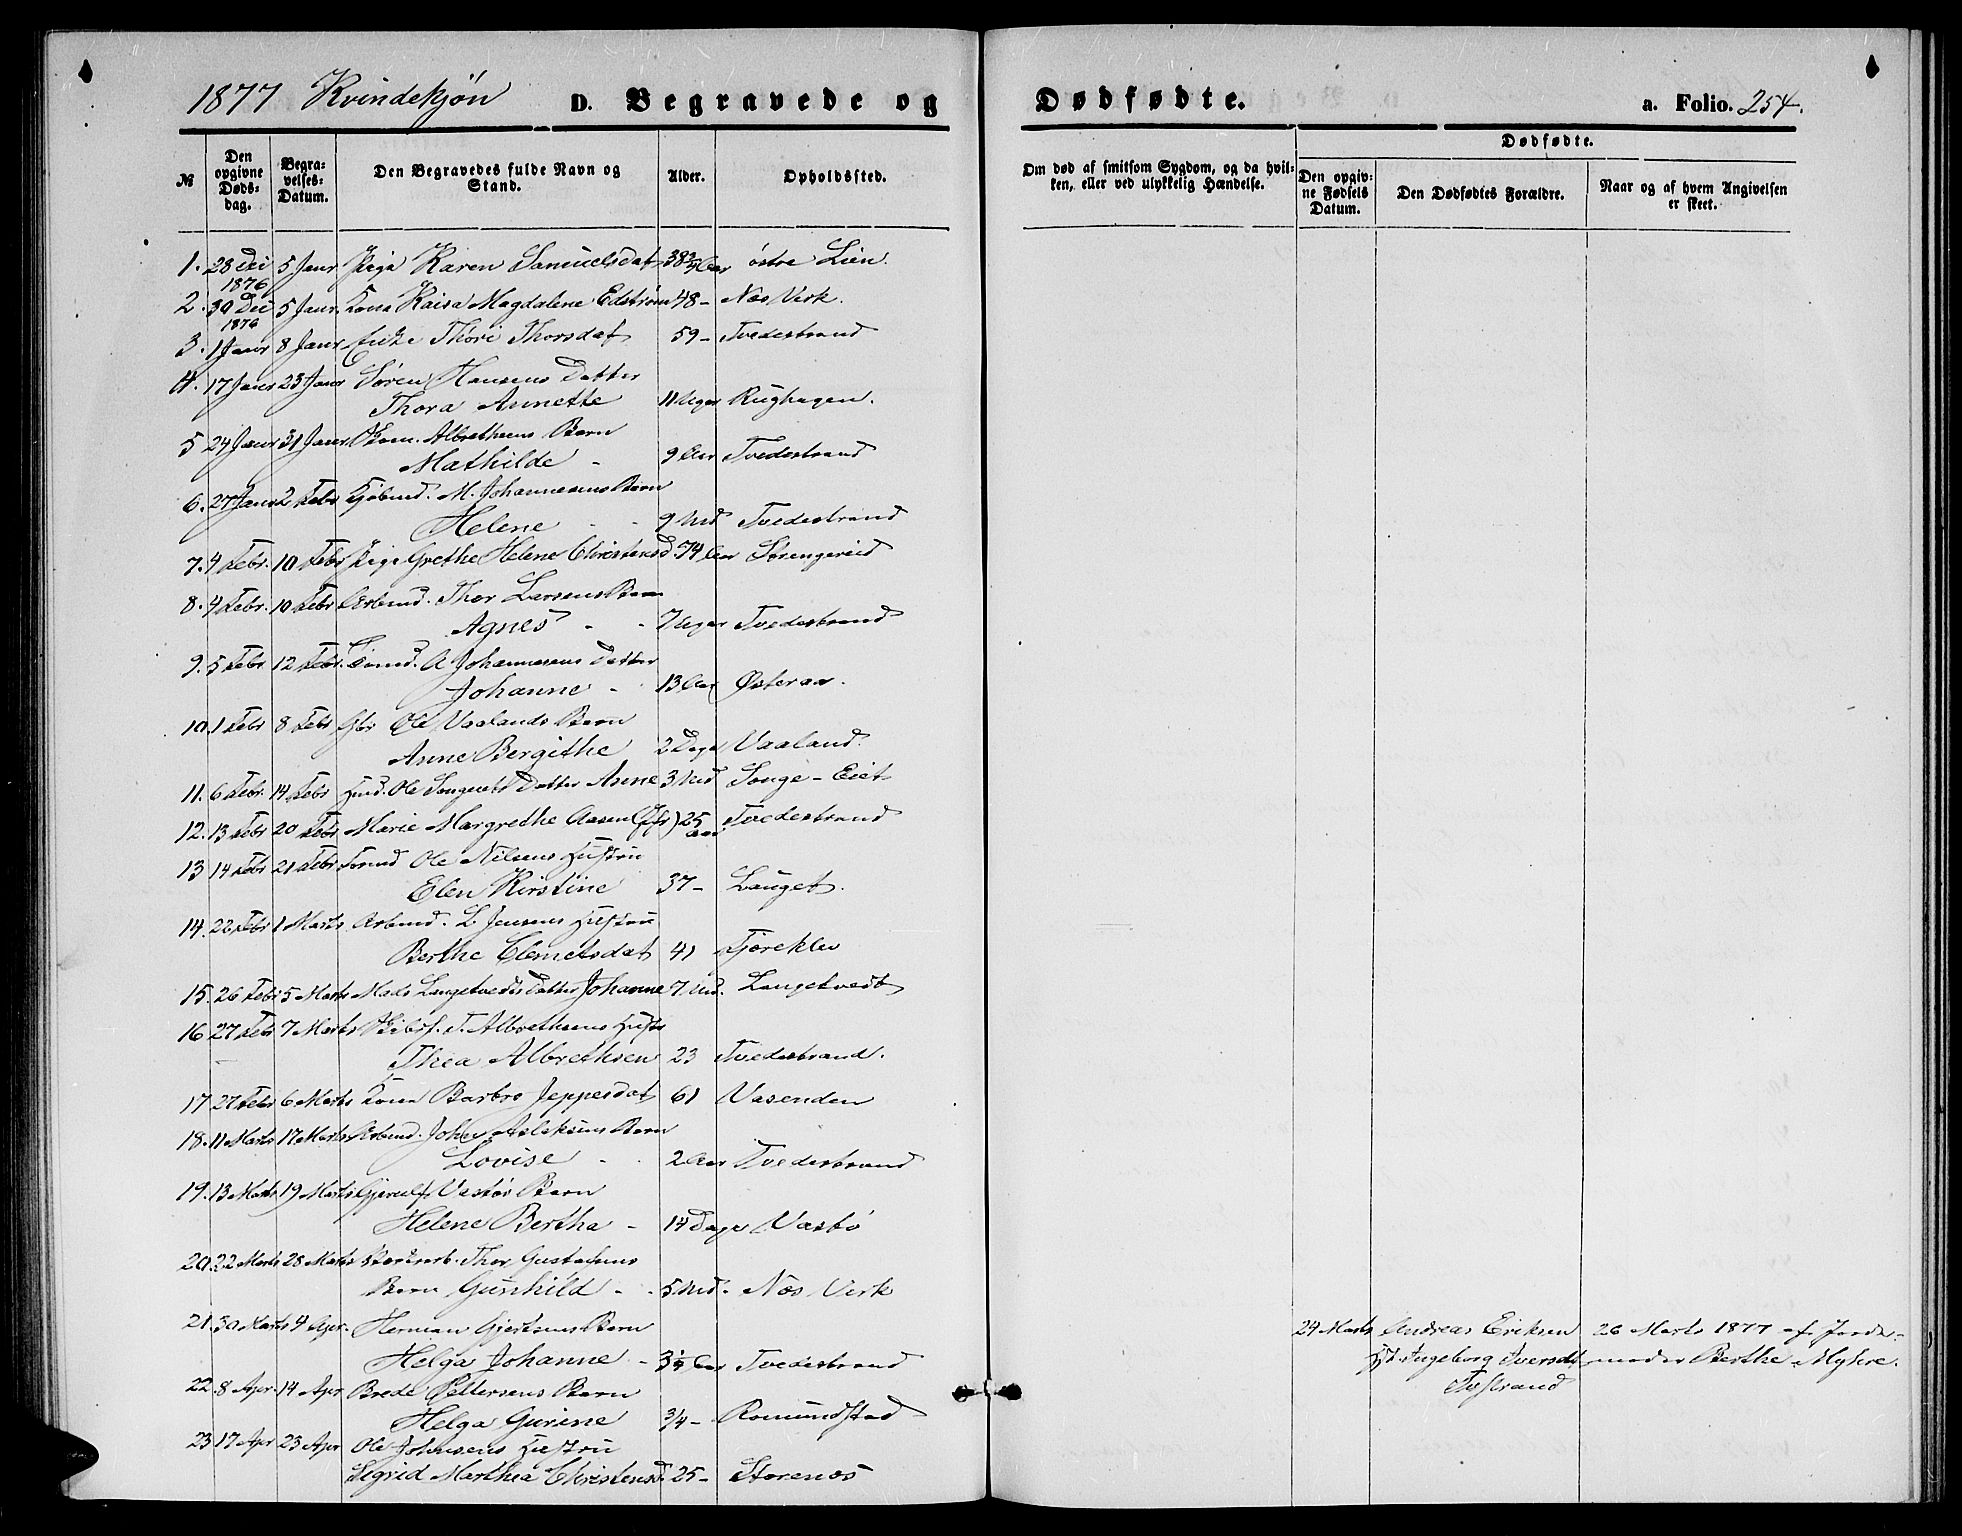 1877 Kvindekjøn D. Begravede og Dødfødte. a. Folio. 254.
№ Den opgivne Døds-dag. Begra-velses-Datum. Den Begravedes fulde Navn og Stand. Alder. Opholdssted. Om død af smitsom Sygdom, og da hvil-ken, eller ved ulykkelig Hændelse. Dødfødte. Den opgiv-ne Fødsels Datum. Den Dødfødtes Forældre. Naar og af hvem Angivelsen er skeet.
1. 28 Dec 5 Janr Pige Karen Samuelsdat 38 Aar østre Lien.
1876
2. 30 Dec 5 Janr Kona Kaisa Magdalene Edstrøm 48 - Næs Verk.
1876
3. 1 Janr 8 Janr Enke Thore Thorsdat 59 - Tvedestrand
4. 17 Janr 23 Janr Søren Hansens Datter
Thora Annette 11 Uger Rughagen.
5 24 Janr 31 Janr Albrethsens Barn
Mathilde - 9 Aar Tvedestrand
6. 27 Janr 2 Febr Kjøbmd. M. Johannesens Barn
Helene - - 9 Md Tvedestrand
7. 4 Febr. 10 Febr Pige Grethe Helene Christensd 74 Aar Sørengereid
8. 4 Febr. 10 Febr Arbmd. Thor Larsens Barn
Agnes - - 7 Uger Tvedestrand
9. 5 Febr 12 Febr. A Johannesens Datter
Johanne - 13 Aar Østeraa.
10. 1 Febr 8 Febr Gbr Ole Vaalands Barn
Anne Bergithe 2 Dage Vaaland.
11. 6 Febr. 14 Febr Husmd. Ole Songeets Datter Anne 3 Md Songe-Eiet
12. 13 Febr 20 Febr Marie Margrethe Aasen 25 Aar Tvedestrand
13 14 Febr 21 Febr Ole Nilsens Hustru
Elen Kirstine 37 - Lauget.
14. 22 Febr 1 Marts Arbmd. L Jensens Hustru
Berthe Clemetsdat 41 Fjæreklev
15. 26 Febr 5 Marts Mads Langetvedts Datter Johanne 7 Md. Langetvedt
16 27 Febr 7 Marts T. Albrethsens Hustr
Thea Albrethsen 23 Tvedestrand.
17 27 Febr 6 Marts Kona Barbro Jeppesdat 61 Vasenden
18. 11 Marts 17 Marts Arbmd. Johan Aslaksens Barn
Lovise - - 2 Aar Tvedestrand
19. 13 Marts 19 Marts Gjerulf Vasbøs Barn
Helene Bertha - 14 Dage Vasbø
20. 22 Marts 28 Marts Thor Gustafsens
Barn Gunhild - - 5 Md. Næs Verk
21. 30 Marts 4 Apr. Herman Gjertsens Barn 24 Marts Andreas Eriksen 26 Marts 1877 af Jorde-
Helga Johanne - 3½ Aar Tvedestrand Ingeborg Iversdt moder Berthe Myhre.
22. 8 Apr. 14 Apr Brede Pettersens Barn Tvstrand
Helga Gurine 3/4 - Romundstad
23 17 Apr 23 Apr Ole Johnsens Hustru
Sigrid Marthea Christensd. 25 - Storenæs